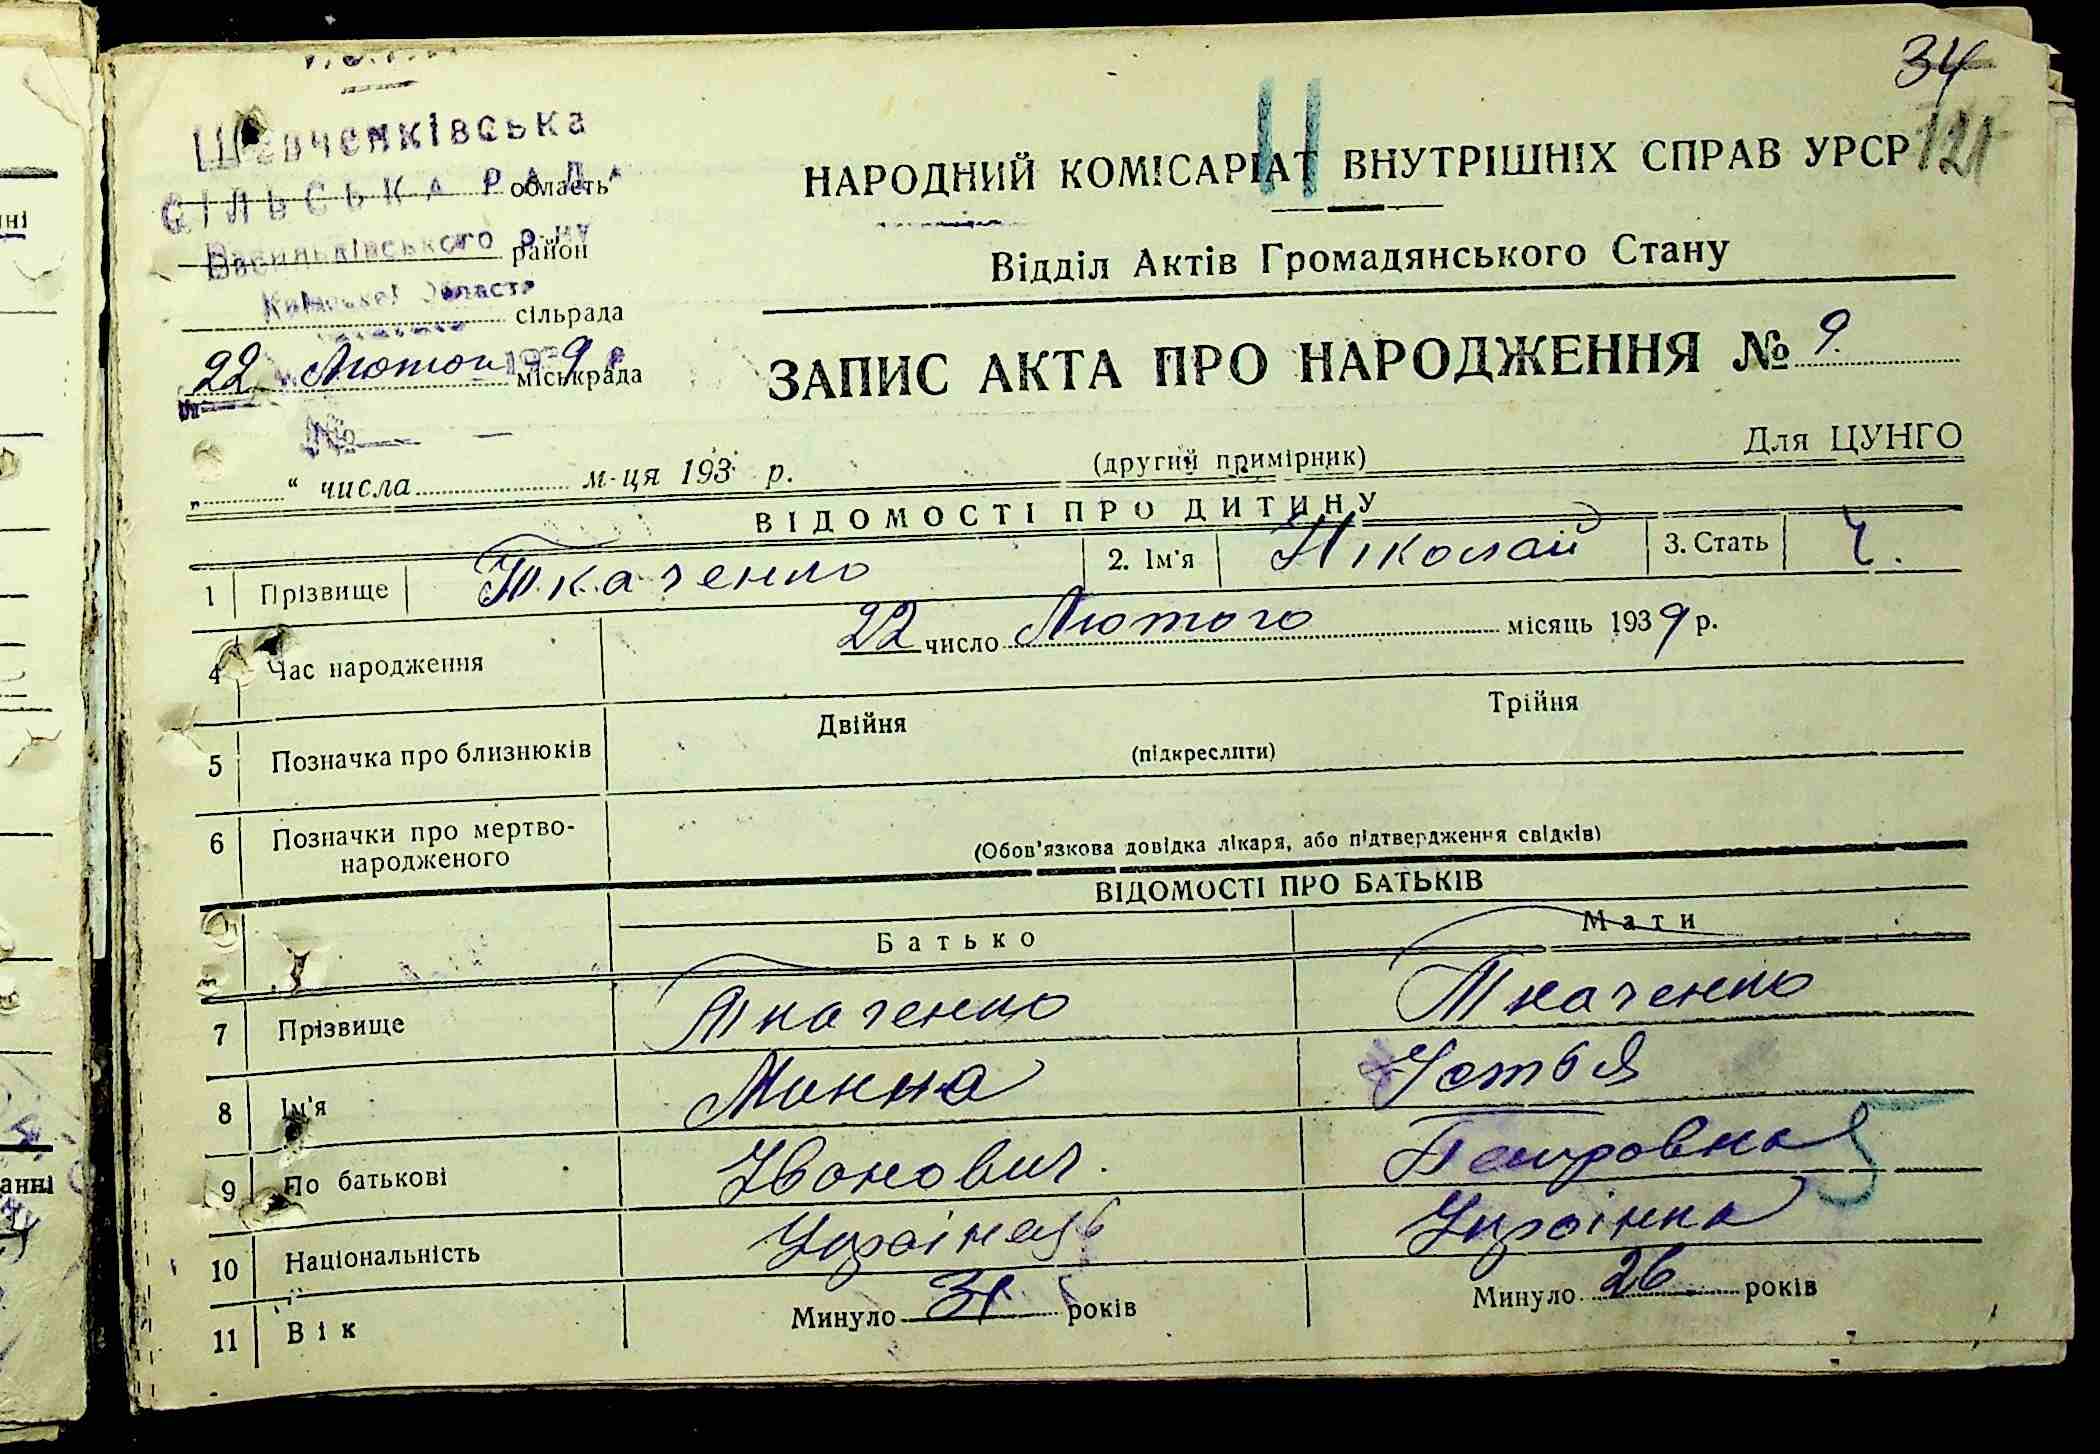 34
121
Шевченківська
СІЛЬСЬКА РАДА
область
Васильківського р-ну
район
Київської Области
сільрада
22 Лютого 1939 р
міськрада
№
НАРОДНИЙ КОМІСАРІАТ ВНУТРІШНІХ СПРАВ УРСР
Відділ Актів Громадянського Стану
ЗАПИС АКТА ПРО НАРОДЖЕННЯ № 9
„ “ числа м-ця 193 р.
(другий примірник)
Для ЦУНГО
ВІДОМОСТІ ПРО ДИТИНУ
1 Прізвище Ткаченко 2. Ім'я Ніколай 3. Стать Ч.
4 Час народження 22 число Лютого місяць 1939 р.
5 Позначка про близнюків Двійня Трійня
(підкреслити)
6 Позначки про мертво-
народженого
(Обов'язкова довідка лікаря, або підтвердження свідків)
ВІДОМОСТІ ПРО БАТЬКІВ
Батько Мати
7 Прізвище Ткаченко Ткаченко
8 Ім'я Минна Устья
9 По батькові Іванович. Петровна
10 Національність Українець Українка
11 Вік Минуло 31 років Минуло 26 років